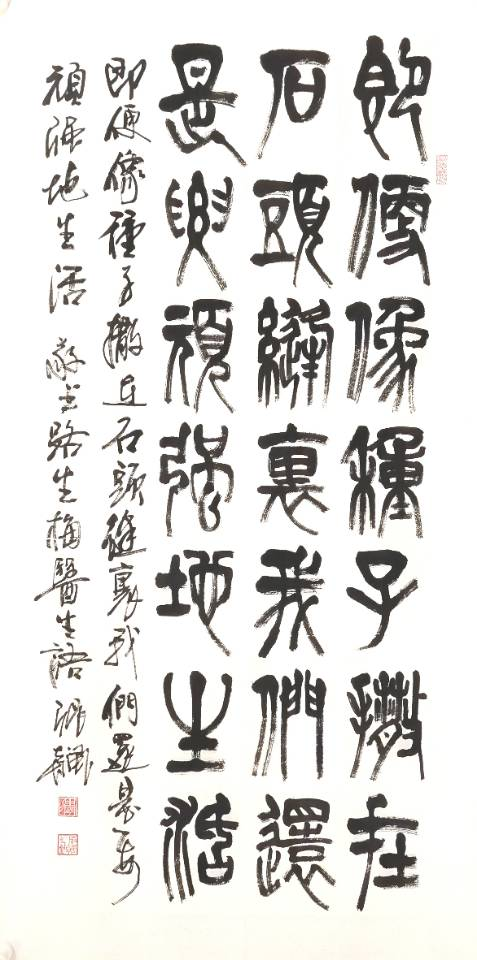 即便像種子撒在
石頭縫裏我們還
是要頑強地生活
即便像種子撒在石頭縫裏我們還是要
頑強地生活 敬書路生梅醫生語